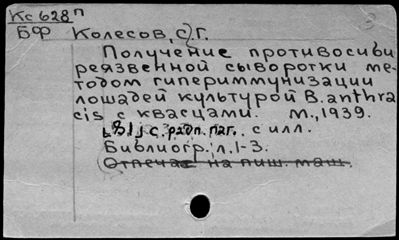 Кс 628 п
БФ Колесов, С. Г.
Получение противосиби
реязвенной сыворотки ме-
тодом гипериммунизации
лошадей культурой B. anthra
cis с квасцами. М., 1939.
[81] с. разд. паг. с илл.
Библиогр.: л. 1-3.
Отпечат на пиш. маш.
3